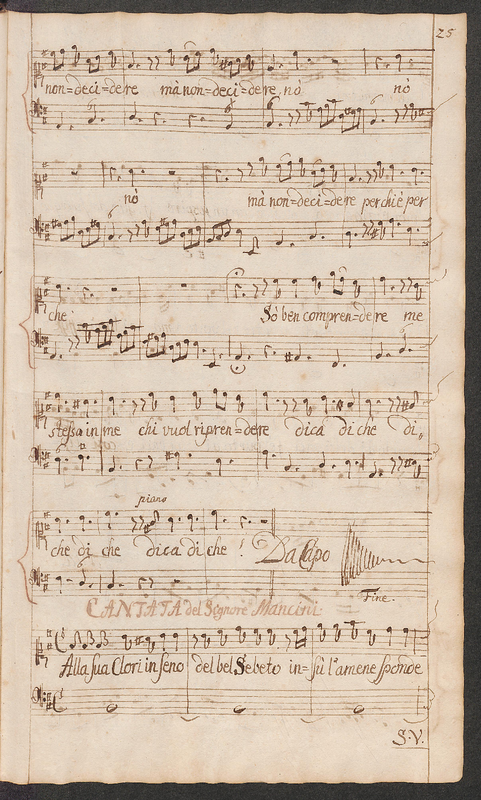 25
non=deci=dere mà non=deci=dere, nò nò
nò mà non=deci=dere perchè per
che Sò ben compren=dere me
stessa in me chi vuol ripren=dere dica di che di,,
piano
che di che dica di che! Da Capo
Fine.
CANTATA del Signore Mancini
Alla sua Clori in seno del bel Sebeto in=sù l'amene sponde
S.V.